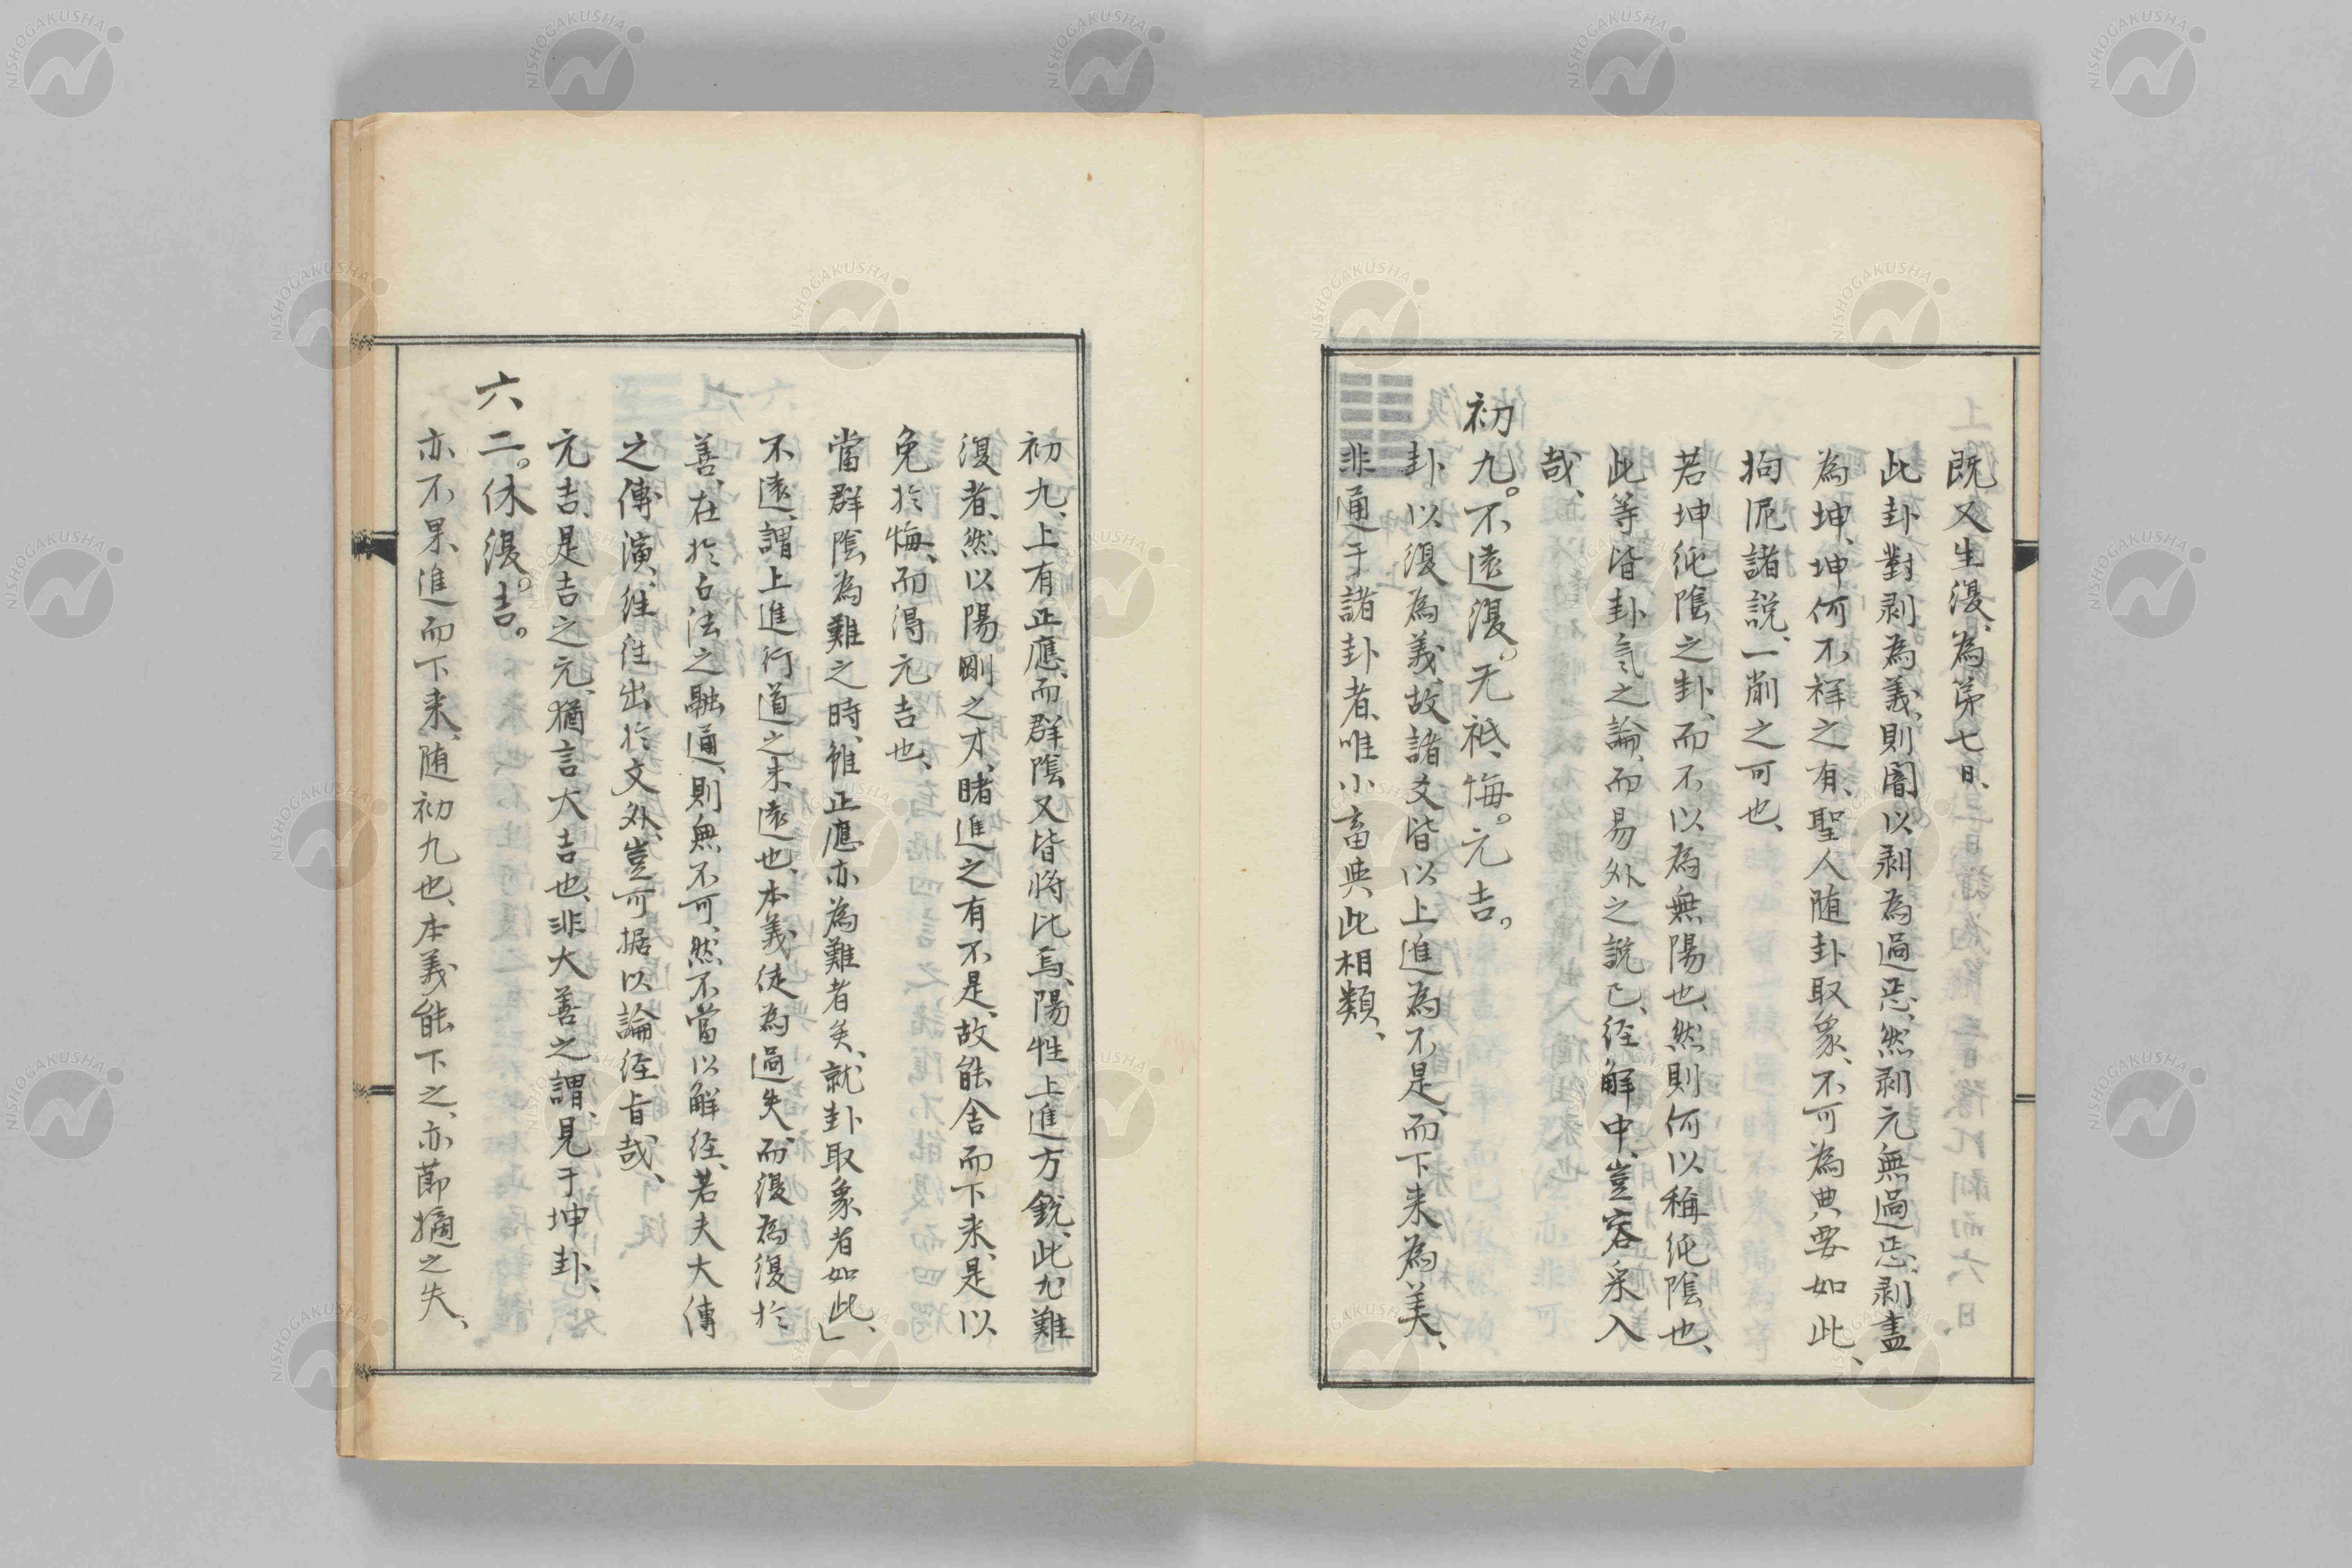 既又生復、為第七日、
此卦對剥為義、則闇以剥為過忒、然剥元無過忒、剥盡
為坤、坤何不祥之有、聖人随卦取象、不可為典要如此、
拘泥諸説、一削之可也、
若坤純陰之卦、而不以為無陽也、然則何以稱純陰也、
此等皆卦氣之論、而易外之説已、経解中、豈容采入
哉、
初九。不遠復。无祗、悔。元吉。
卦以復為義、故諸爻皆以上進為不是、而下来為美、
非通于諸卦者、唯小畜與此相類、
初九、上有正應、而群陰又皆将比焉、陽性上進方鋭、此尤難
復者、然以陽剛之才、睹進之有不是、故能舍而下来、是以
免於悔、而得元吉也、
當群陰為難之時、雖正應亦為難者矣、就卦取象者如此、」
不遠、謂上進行道之未遠也、本義徒為過失、而復為復於
善、在於占法之融通、則無不可、然不當以解経、若夫大傳
之傳演、徃徃出於文外、豈可据以論経旨哉、
元吉、是吉之元、猶言大吉也、非大善之謂、見于坤卦、
六二。休復。吉。
亦不果、進而下来、随初九也、本義能下之、亦節摘之失、
NISHOGAKUSHA